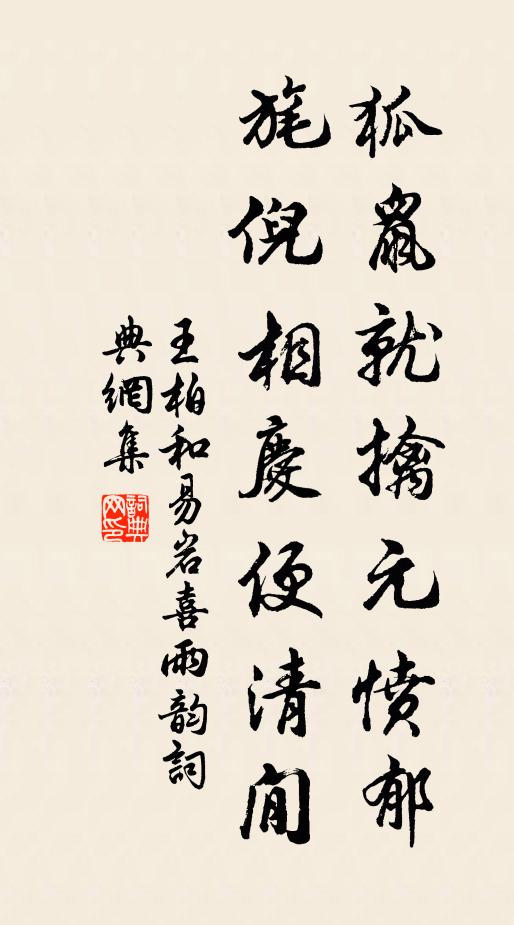 狐鼠就擒元憤郁
旄倪相慶便清閒
王柏和易岩喜雨韵詞
典網集
詞典网印